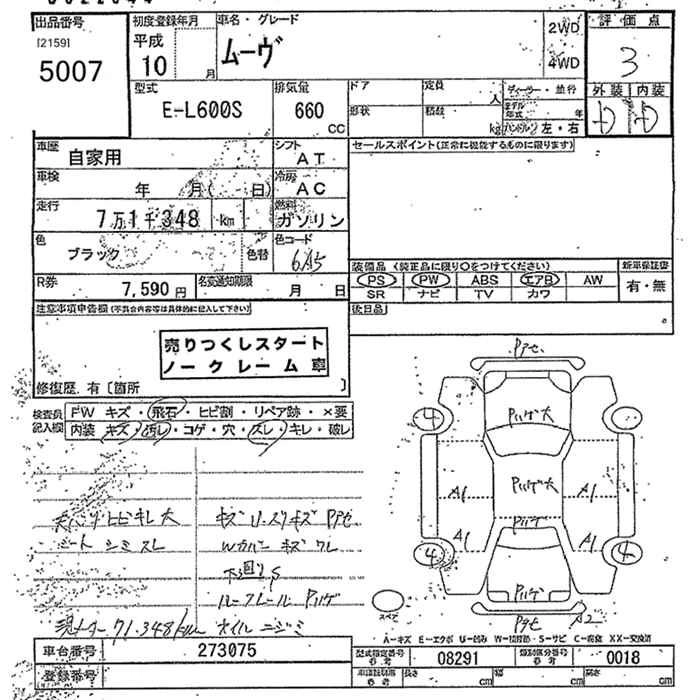 出品番号 初度登録年月 車名・グレード 2WD 評価点
[2159] 平成 ムーヴ
5007 10 月 4WD 3
型式 排気量 ドア 定員 人 ディーラー・並行 外装 内装
E-L600S 660 CC 形状 積載 kg モデル年式 年 D D
ハンドル 左・右
車歴 自家用 シフト AT セールスポイント(正常に機能するものに限ります)
車検 年 月( 日) 冷房 AC
走行 7万1千348 km 燃料 ガソリン
色 ブラック 色替 色コード
R券 7,590 円 名変通知期限 月 日
装備品 (純正品に限り○をつけてください) 新車保証書
PS PW ABS エアB AW 有・無
SR ナビ TV カワ
注意事項申告欄(不具合内容等は具体的に記入して下さい) 後日品
売りつくしスタート
ノークレーム車
修復歴 有〔箇所 〕
検査員 FW キズ・飛石・ヒビ割・リペア跡・×要
記入欄 内装 キズ・汚レ・コゲ・穴・スレ・キレ・破レ
Pアセ
4
Pハゲ大
Pハゲ大
A1 A1
Pハゲ
A1 A1
4 4
Pハゲ
Pアセ A2
スペア
ヒビキレ大 キズU・スリキズPアセ
シート シミスレ Wカバー キズワレ
下廻りS
ルーフレール Pハゲ
現メーター71,348km オイルニジミ
A-キズ E-エクボ U-凹み W-補修跡 S-サビ C-腐食 XX-交換済
車台番号 273075 型式指定番号 参考 08291 類別区分番号 参考 0018
登録番号 長さ cm 幅 cm 高さ cm